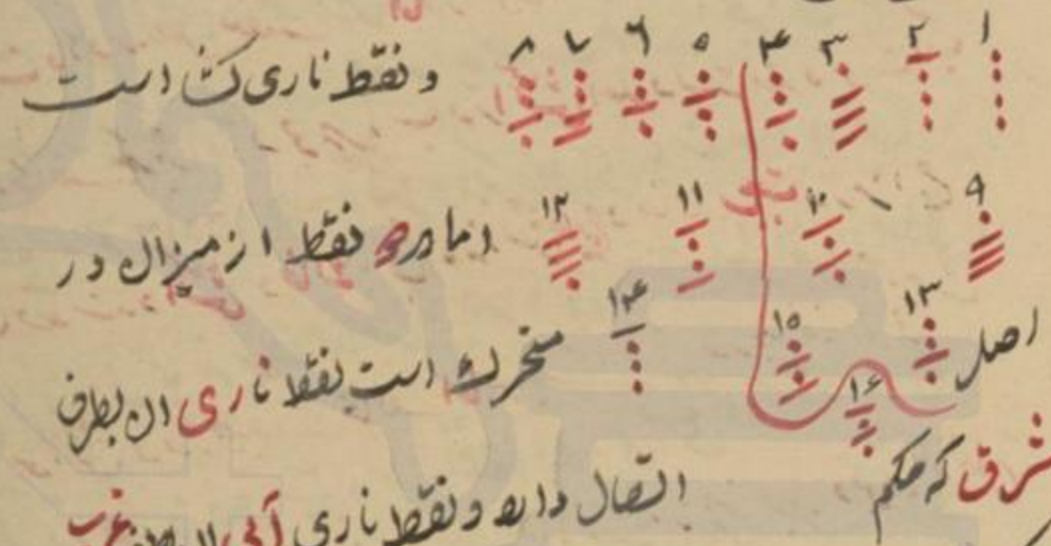 ۱ ۲ ۳ ۴ ۵ ۶ ۷ ۸
و نقط ناری است
۹ ۱۰ ۱۱ ۱۲
اما نقط از میزان در
اصل ۱۳ ۱۵ ۱۴
۱۶ متحرک است نقط ناری ان بطرف
شرق که حکم اتصال دارد و نقط ناری آبی غرب